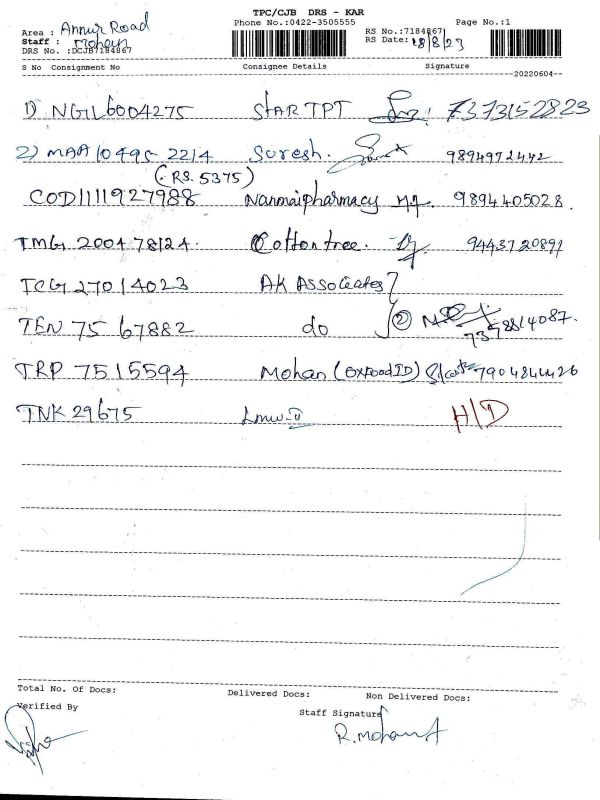 TPC/CJB DRS - KAR
Phone No.:0422-3505555 Page No.:1
Area : Annur Road
Staff : Mohan
DRS No. :DCJB7184867
RS No.:7184867
RS Date: 18/8/23
S No Consignment No Consignee Details Signature
--20220604--
1) NGL6004275 STAR TPT 7373152823
2) MAA 10495 2214 Suresh. 9894972442
(RS. 5375)
COD1111927988 Narmai pharmacy 9894405028.
TMG 200478124. Cotton tree. 9443720891
TCG 27014023 AK Associates
TEN 75 67882 do (2) 7358814087.
TRP 7515594 Mohan 7904844426
TNK 29675 H/D
Total No. Of Docs: Delivered Docs: Non Delivered Docs:
Verified By Staff Signature
R. Mohan